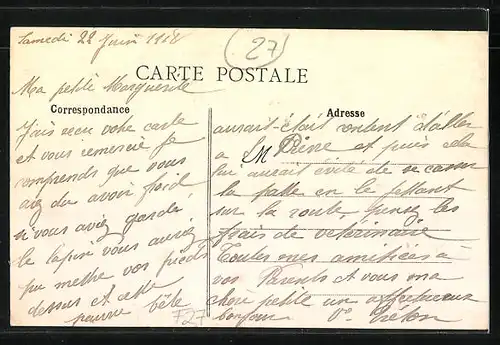 Samedi 22 Juin 1918
27
CARTE POSTALE
Ma petite Marguerite
Correspondance
J'ai reçu votre carte
et vous remercie je
comprends que vous
ayez du avoir froid
si vous aviez gardé
le lapin vous auriez
pu mettre vos pieds
dessus et cette
pauvre bête
F27
Adresse
aurait était content d'aller
a M Reine et puis cela
lui aurait évité de se casser
la patte en le
sur la route les
frais de vétérinaire
Toutes mes amitiées à
vos Parents et vous ma
chère petite un affectueux
bonjour Ve